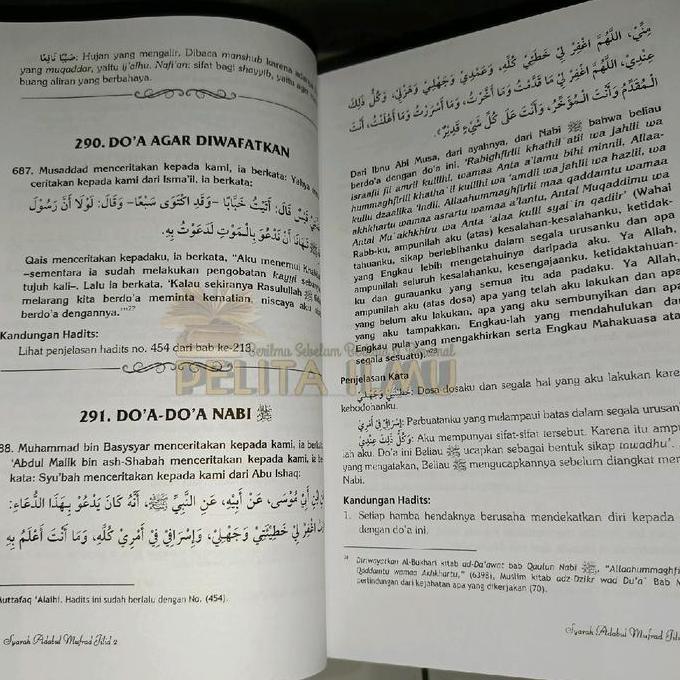 صَيِّبًا نَافِعًا: Hujan yang mengalir. Dibaca manshub karena
yang muqaddar, yaitu ij'alhu. Nafi'an: sifat bagi shayyib, yaitu agar
buang aliran yang berbahaya.
290. DO'A AGAR DIWAFATKAN
687. Musaddad menceritakan kepada kami, ia berkata: Yahya
ceritakan kepada kami dari Isma'il, ia berkata:
قَيْسٌ قَالَ: أَتَيْتُ خَبَّابًا –وَقَدِ اكْتَوَى سَبْعًا– وَقَالَ: لَوْلَا أَنَّ رَسُوْلَ
نَهَانَا أَنْ نَدْعُوَ بِالْمَوْتِ لَدَعَوْتُ بِهِ.
Qais menceritakan kepadaku, ia berkata, "Aku menemui
–sementara ia sudah melakukan pengobatan kayyi sebanyak
tujuh kali–. Lalu ia berkata, 'Kalau sekiranya Rasulullah ﷺ
melarang kita berdo'a meminta kematian, niscaya aku
berdo'a dengannya.'"
Kandungan Hadits:
Lihat penjelasan hadits no. 454 dari bab ke-213.
Berilmu Sebelum
PELITA ILMU
291. DO'A-DO'A NABI ﷺ
88. Muhammad bin Basysyar menceritakan kepada kami, ia berkata:
'Abdul Malik bin ash-Shabah menceritakan kepada kami, ia
kata: Syu'bah menceritakan kepada kami dari Abu Ishaq:
ابْنِ أَبِيْ مُوْسَى، عَنْ أَبِيْهِ، عَنِ النَّبِيِّ ﷺ، أَنَّهُ كَانَ يَدْعُوْ بِهَذَا الدُّعَاءِ:
اغْفِرْ لِيْ خَطِيْئَتِيْ وَجَهْلِيْ، وَإِسْرَافِيْ فِيْ أَمْرِيْ كُلِّهِ، وَمَا أَنْتَ أَعْلَمُ بِهِ
Muttafaq 'Alaihi. Hadits ini sudah berlalu dengan No. (454).
Syarah Adabul Mufrad Jilid 2
مِنِّيْ، اللَّهُمَّ اغْفِرْ لِيْ خَطَئِيْ كُلَّهُ، وَعَمْدِيْ وَجَهْلِيْ وَهَزْلِيْ، وَكُلُّ ذَلِكَ
عِنْدِيْ، اللَّهُمَّ اغْفِرْ لِيْ مَا قَدَّمْتُ وَمَا أَخَّرْتُ، وَمَا أَسْرَرْتُ وَمَا أَعْلَنْتُ، أَنْتَ
الْمُقَدِّمُ وَأَنْتَ الْمُؤَخِّرُ، وَأَنْتَ عَلَى كُلِّ شَيْءٍ قَدِيْرٌ﴾.
Dari Ibnu Abi Musa, dari ayahnya, dari Nabi ﷺ bahwa beliau
berdo'a dengan do'a ini. 'Rabighfirlii khathii'atii wa jahlii wa
israafii fii amrii kullihi, wamaa Anta a'lamu bihi minnii. Allaa-
hummaghfirlii khatha'ii kullihi wa 'amdii wa jahlii wa hazlii, wa
kullu dzaalika 'indii. Allaahummaghfirlii maa qaddamtu wamaa
akhkhartu wamaa asrartu wamaa a'lantu, Antal Muqaddimu wa
Antal Mu'akhkhiru wa Anta 'alaa kulli syai'in qadiir' (Wahai
Rabb-ku, ampunilah aku (atas) kesalahan-kesalahanku, ketidak-
tahuanku, sikap berlebihanku dalam segala urusanku dan apa
yang Engkau lebih mengetahuinya daripada aku. Ya Allah,
ampunilah seluruh kesalahanku, kesengajaanku, ketidaktahuan-
ku dan gurauanku yang semua itu ada padaku. Ya Allah,
ampunilah aku (atas dosa) apa yang telah aku lakukan dan apa
yang belum aku lakukan, apa yang aku sembunyikan dan apa
yang aku tampakkan. Engkau-lah yang mendahulukan dan
Engkau pula yang mengakhirkan serta Engkau Mahakuasa atas
segala sesuatu)."
Penjelasan Kata
خَطِيْئَتِيْ وَجَهْلِيْ: Dosa dosaku dan segala hal yang aku lakukan
kebodohanku.
وَإِسْرَافِيْ فِيْ أَمْرِيْ: Perbuatanku yang melampaui batas dalam segala
وَكُلُّ ذَلِكَ عِنْدِيْ: Aku mempunyai sifat-sifat tersebut. Karena itu
lah aku. Do'a ini Beliau ﷺ ucapkan sebagai bentuk sikap tawadhu'.
yang mengatakan, Beliau ﷺ mengucapkannya sebelum diangkat
Nabi.
Kandungan Hadits:
1. Setiap hamba hendaknya berusaha mendekatkan diri kepada
dengan do'a ini.
Diriwayatkan Al-Bukhari kitab ad-Da'awat bab Qaulun Nabi ﷺ,
Qaddamtu wamaa Akhkhartu," (6398), Muslim kitab adz Dzikr wad Du'a' Bab
perlindungan dari kejahatan apa yang dikerjakan (70).
Syarah Adabul Mufrad